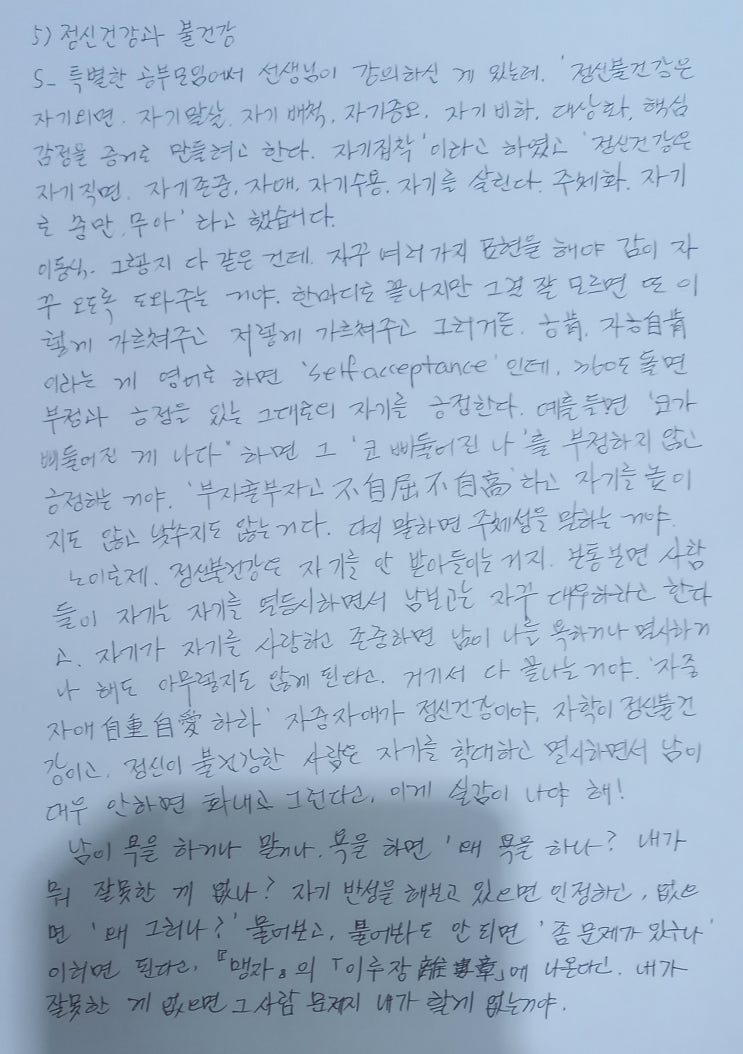 5) 정신건강과 불건강
S_ 특별한 공부모임에서 선생님이 강의하신 게 있는데. '정신불건강은
자기외면. 자기말살. 자기 배척, 자기증오. 자기비하. 대상화, 핵심
감정을 증거로 만들려고 한다. 자기집착'이라고 하였고 '정신건강은
자기직면. 자기존중, 자애, 자기수용. 자기를 살린다. 주체화. 자기
로 충만, 무아' 라고 했습니다.
이동식. 그러니까 다 같은 건데. 자꾸 여러 가지 표현을 해야 감이 자
꾸 오도록 도와주는 거야. 한마디로 끝나지만 그걸 잘 모르면 또 이
렇게 가르쳐주고 저렇게 가르쳐주고 그러거든. 긍肯. 자긍自肯
이라는 게 영어로 하면 'self acceptance' 인데, 360도 돌면
부정과 긍정을 있는 그대로의 자기를 긍정한다. 예를 들면 '코가
삐뚤어진 게 나다" 하면 그 '코 삐뚤어진 나'를 부정하지 않고
긍정하는 거야. '부자굴부자고 不自屈不自高'하고 자기를 높이
지도 않고 낮추지도 않는거다. 다시 말하면 주체성을 말하는 거야.
노이로제. 정신불건강은 자기를 안 받아들이는 거지. 보통 보면 사람
들이 자기는 자기를 멸시하면서 남보고는 자꾸 대우하라고 한다
고. 자기가 자기를 사랑하고 존중하면 남이 나를 욕하거나 멸시하거
나 해도 아무렇지도 않게 된다고. 거기서 다 끝나는 거야. '자중
자애 自重自愛 하라' 자중자애가 정신건강이야, 자학이 정신불건
강이고. 정신이 불건강한 사람은 자기를 학대하고 멸시하면서 남이
대우 안하면 화내고 그런다고, 이게 실감이 나야 해!
남이 욕을 하거나 말거나. 욕을 하면 '왜 욕을 하나? 내가
뭐 잘못한 게 없나? 자기 반성을 해보고 있으면 인정하고, 없으
면 '왜 그러나?' 물어보고, 물어봐도 안 되면 '좀 문제가 있구나'
이러면 된다고, 『맹자』의 「이루장 離婁章」에 나온다고. 내가
잘못한 게 없으면 그사람 문제지 내가 할게 없는거야.